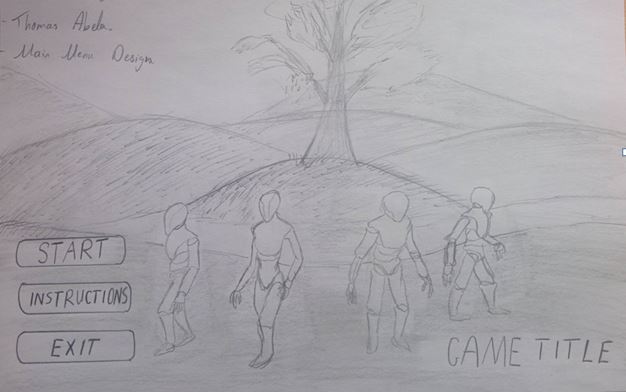 - Thomas Abela.
- Main Menu Design
START
INSTRUCTIONS
EXIT
GAME TITLE